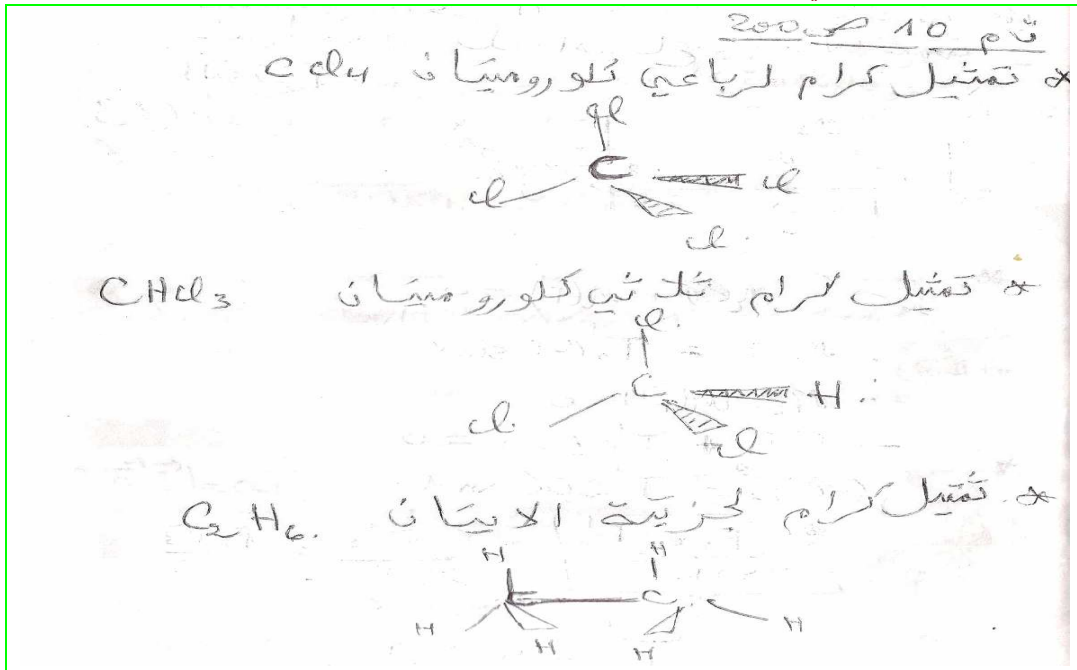 تم 10 ص 200
* تمثيل كرام لرباعي كلوروميتان CCl4
Cl
C
Cl
Cl
Cl
* تمثيل كرام ثلاثي كلوروميتان CHCl3
Cl
C
H
Cl
Cl
* تمثيل كرام لجزيئة الايتان C2H6.
H
H
C
C
H
H
H
H